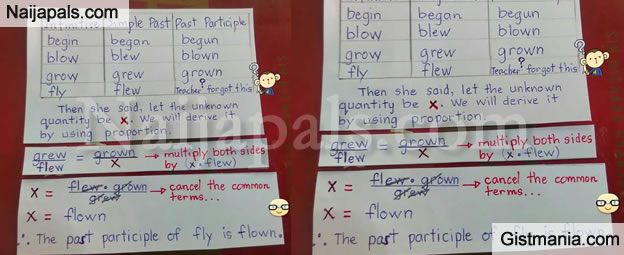 Naijapals.com
Simple Past Past Participle
begin began begun
blow blew blown
grow grew grown
fly flew ?
Teacher forgot this
Then she said, let the unknown
quantity be x. We will derive it
by using proportion.
grew/flew = grown/x → multiply both sides
by (x · flew)
x = flew · grown/grew → cancel the common
terms...
x = flown
∴ The past participle of fly is flown.
begin began begun
blow blew blown
grow grew grown
fly flew ?
Teacher forgot this
Then she said, let the unknown
quantity be x. We will derive it
by using proportion.
grew/flew = grown/x → multiply both sides
by (x · flew)
x = flew · grown/grew → cancel the common
terms...
x = flown
∴ The past participle of fly is flown
Naijapals.com
Gistmania.com